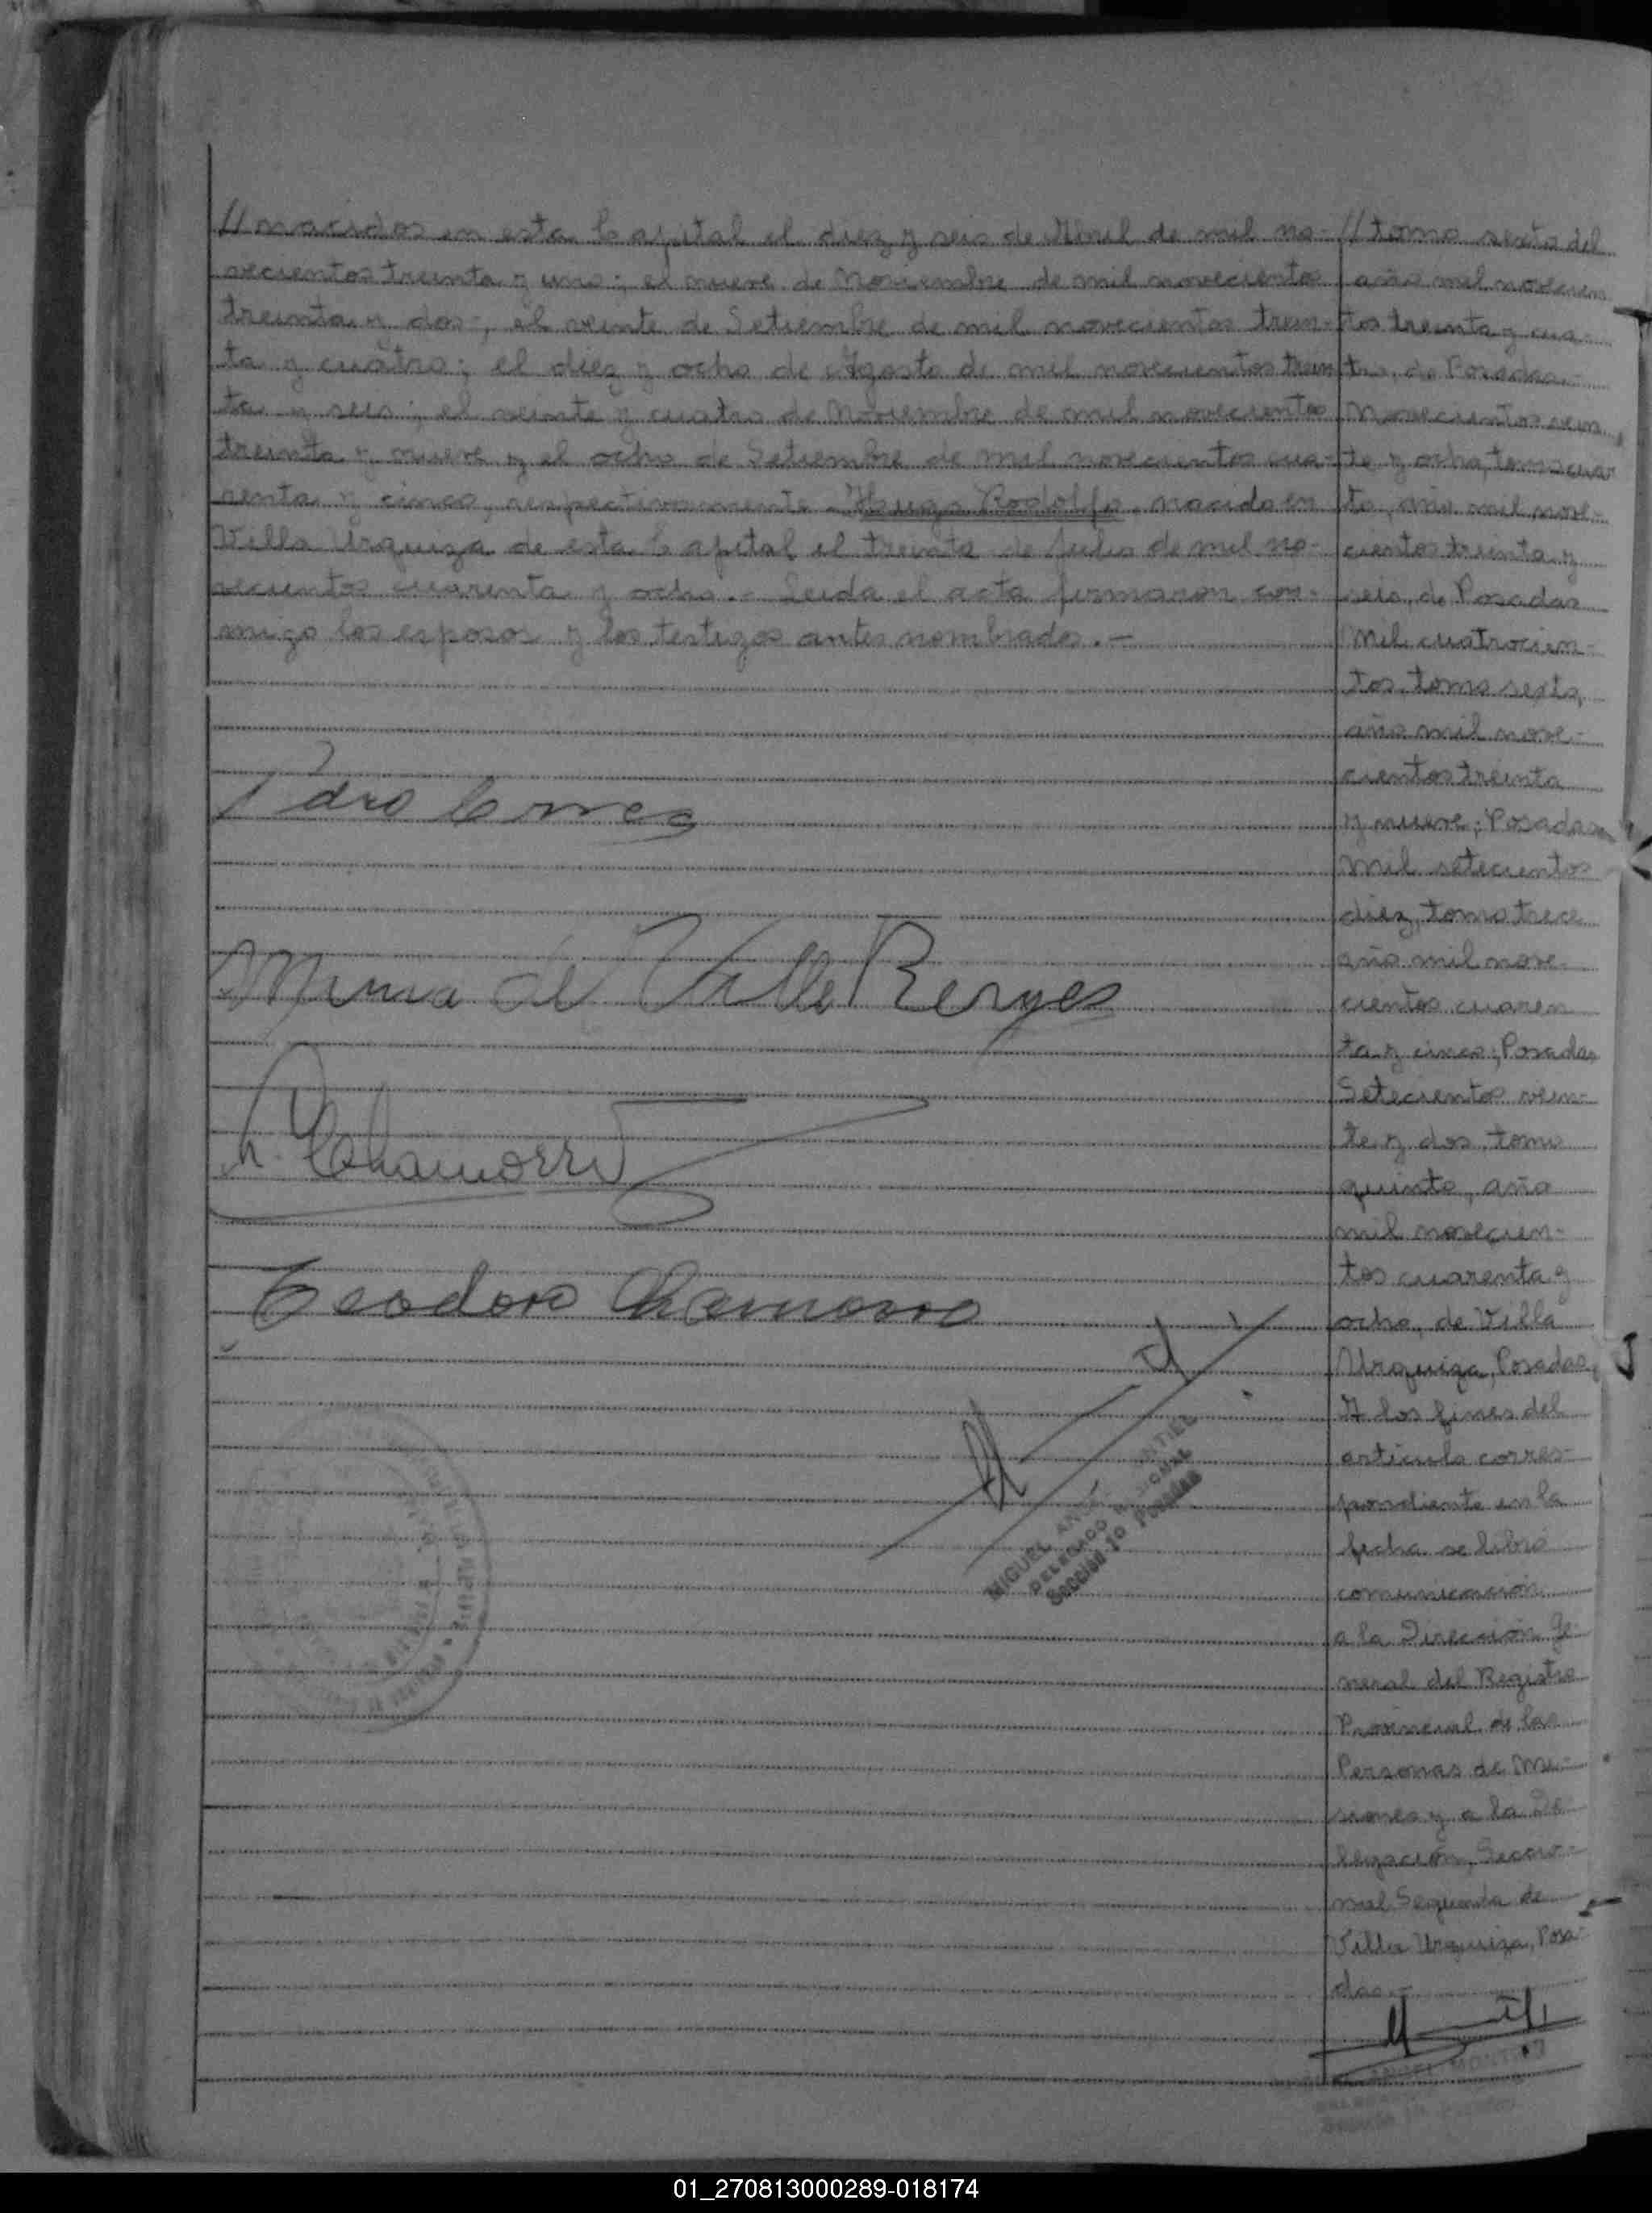 // nacidos en esta Capital el diez y seis de Abril de mil no-
vecientos treinta y uno; el nueve de Noviembre de mil novecientos
treinta y dos; el veinte de Setiembre de mil novecientos trein-
ta y cuatro; el diez y ocho de Agosto de mil novecientos trein
ta y seis; el veinte y cuatro de Noviembre de mil novecientos
treinta y nueve y el ocho de Setiembre de mil novecientos cua-
renta y cinco, respectivamente. Hugo Rodolfo, nacido en
Villa Urquiza de esta Capital el treinta de Julio de mil no-
vecientos cuarenta y ocho.- Leida el acta firmaron con-
migo los esposos y los testigos antes nombrados.-
Maria del Valle Reyes
Chamorro
Teodoro Chamorro
MIGUEL ANGEL MONTIEL
DELEGADO
Sección 1º Posadas
// tomo sexto del
año mil novecien
tos treinta y cua-
tro, de Posadas.-
Novecientos vein
te y ocho, tomo cuar
to, año mil nove-
cientos treinta y
seis, de Posadas
Mil cuatrocien-
tos, tomo sexto,
año mil nove-
cientos treinta
y nueve; Posadas
Mil setecientos
diez, tomo trece
año mil nove-
cientos cuaren
ta y cinco; Posadas
Setecientos vein-
te y dos, tomo
quinto, año
mil novecien-
tos cuarenta y
ocho, de Villa
Urquiza, Posadas,
A los fines del
artículo corres-
pondiente en la
fecha se libró
comunicación
a la Dirección Ge-
neral del Registro
Provincial de las
Personas de Mi-
siones y a la De
legación Seccio-
nal Segunda de
Villa Urquiza, Posa-
das.-
ANGEL MONTIEL
01_270813000289-018174